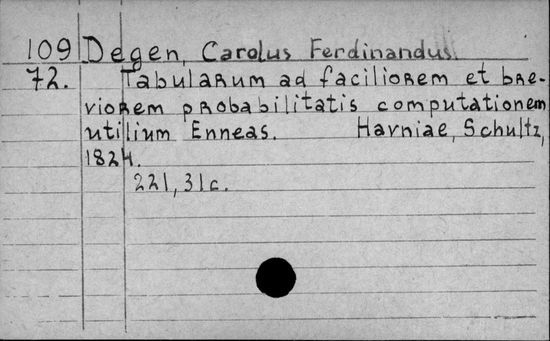 109 Degen, Carolus Ferdinandus
72. Tabularum ad faciliorem et bre-
viorem probabilitatis computationem
utilium Enneas. Havniae, Schultz,
1824.
221, 31c.